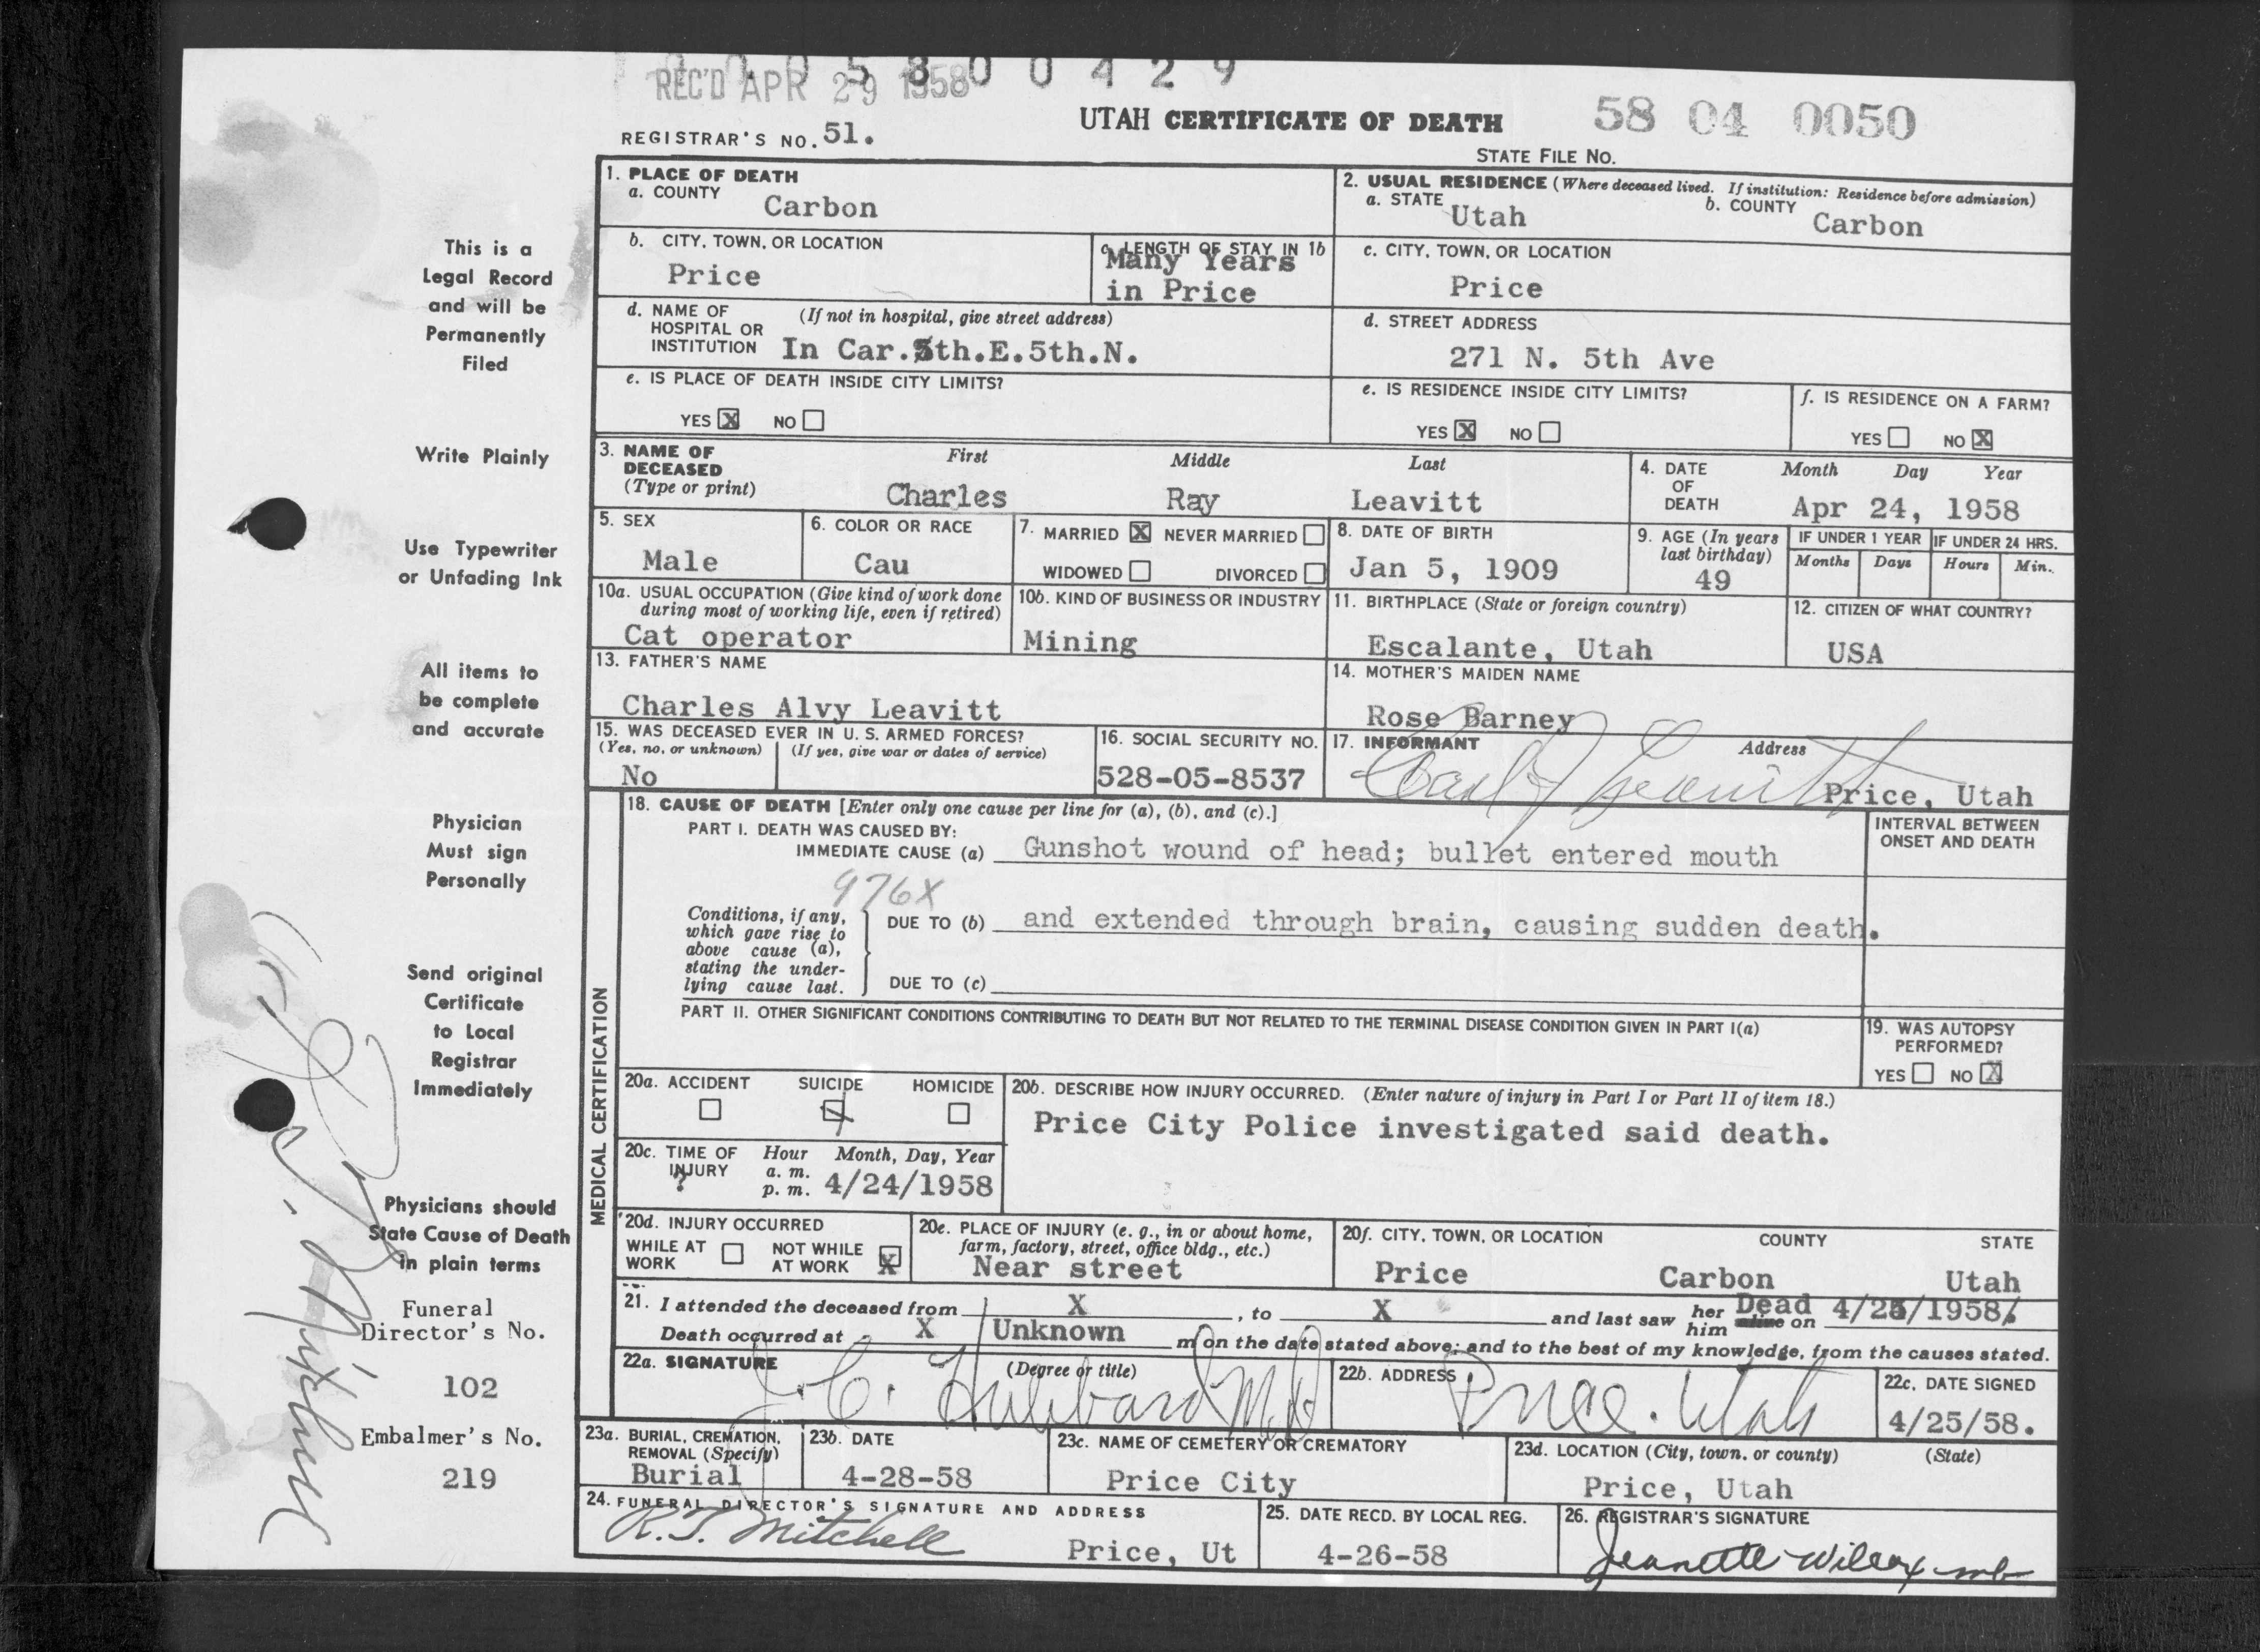 0 0 4 2 9
REC'D APR 29 1958
58 04 0050
UTAH CERTIFICATE OF DEATH
REGISTRAR'S NO. 51.
STATE FILE NO.
1. PLACE OF DEATH
a. COUNTY
Carbon
2. USUAL RESIDENCE (Where deceased lived. If institution: Residence before admission)
a. STATE Utah b. COUNTY Carbon
b. CITY, TOWN, OR LOCATION
Price
c. LENGTH OF STAY IN 1b
Many Years
in Price
c. CITY, TOWN, OR LOCATION
Price
d. NAME OF (If not in hospital, give street address)
HOSPITAL OR
INSTITUTION In Car. 5th.E.5th.N.
d. STREET ADDRESS
271 N. 5th Ave
e. IS PLACE OF DEATH INSIDE CITY LIMITS?
YES X NO
e. IS RESIDENCE INSIDE CITY LIMITS?
YES X NO
f. IS RESIDENCE ON A FARM?
YES NO X
3. NAME OF DECEASED
(Type or print)
First Middle Last
Charles Ray Leavitt
4. DATE OF DEATH
Month Day Year
Apr 24, 1958
5. SEX
Male
6. COLOR OR RACE
Cau
7. MARRIED X NEVER MARRIED
WIDOWED DIVORCED
8. DATE OF BIRTH
Jan 5, 1909
9. AGE (In years
last birthday)
49
IF UNDER 1 YEAR
Months Days
IF UNDER 24 HRS.
Hours Min.
10a. USUAL OCCUPATION (Give kind of work done
during most of working life, even if retired)
Cat operator
10b. KIND OF BUSINESS OR INDUSTRY
Mining
11. BIRTHPLACE (State or foreign country)
Escalante, Utah
12. CITIZEN OF WHAT COUNTRY?
USA
13. FATHER'S NAME
Charles Alvy Leavitt
14. MOTHER'S MAIDEN NAME
Rose Barney
15. WAS DECEASED EVER IN U. S. ARMED FORCES?
(Yes, no, or unknown) (If yes, give war or dates of service)
No
16. SOCIAL SECURITY NO.
528-05-8537
17. INFORMANT Address
Leavitt Price, Utah
MEDICAL CERTIFICATION
18. CAUSE OF DEATH [Enter only one cause per line for (a), (b), and (c).]
INTERVAL BETWEEN
ONSET AND DEATH
PART I. DEATH WAS CAUSED BY:
IMMEDIATE CAUSE (a) Gunshot wound of head; bullet entered mouth
976X
Conditions, if any,
which gave rise to
above cause (a),
stating the under-
lying cause last.
DUE TO (b) and extended through brain, causing sudden death.
DUE TO (c)
PART II. OTHER SIGNIFICANT CONDITIONS CONTRIBUTING TO DEATH BUT NOT RELATED TO THE TERMINAL DISEASE CONDITION GIVEN IN PART I(a)
19. WAS AUTOPSY
PERFORMED?
YES NO X
20a. ACCIDENT SUICIDE HOMICIDE
20b. DESCRIBE HOW INJURY OCCURRED. (Enter nature of injury in Part I or Part II of item 18.)
Price City Police investigated said death.
20c. TIME OF INJURY Hour Month, Day, Year
? a. m.
p. m. 4/24/1958
20d. INJURY OCCURRED
WHILE AT WORK NOT WHILE AT WORK X
20e. PLACE OF INJURY (e. g., in or about home,
farm, factory, street, office bldg., etc.)
Near street
20f. CITY, TOWN, OR LOCATION COUNTY STATE
Price Carbon Utah
21. I attended the deceased from X , to X and last saw her him alive on Dead 4/25/1958.
Death occurred at X Unknown m on the date stated above; and to the best of my knowledge, from the causes stated.
22a. SIGNATURE (Degree or title)
J. C. Hubbard M.D
22b. ADDRESS
Price. Utah
22c. DATE SIGNED
4/25/58.
23a. BURIAL, CREMATION,
REMOVAL (Specify)
Burial
23b. DATE
4-28-58
23c. NAME OF CEMETERY OR CREMATORY
Price City
23d. LOCATION (City, town, or county) (State)
Price, Utah
24. FUNERAL DIRECTOR'S SIGNATURE AND ADDRESS
R.T. Mitchell Price, Ut
25. DATE RECD. BY LOCAL REG.
4-26-58
26. REGISTRAR'S SIGNATURE
Jeanette Wilcox
This is a
Legal Record
and will be
Permanently
Filed
Write Plainly
Use Typewriter
or Unfading Ink
All items to
be complete
and accurate
Physician
Must sign
Personally
Send original
Certificate
to Local
Registrar
Immediately
Physicians should
State Cause of Death
in plain terms
Funeral
Director's No.
102
Embalmer's No.
219